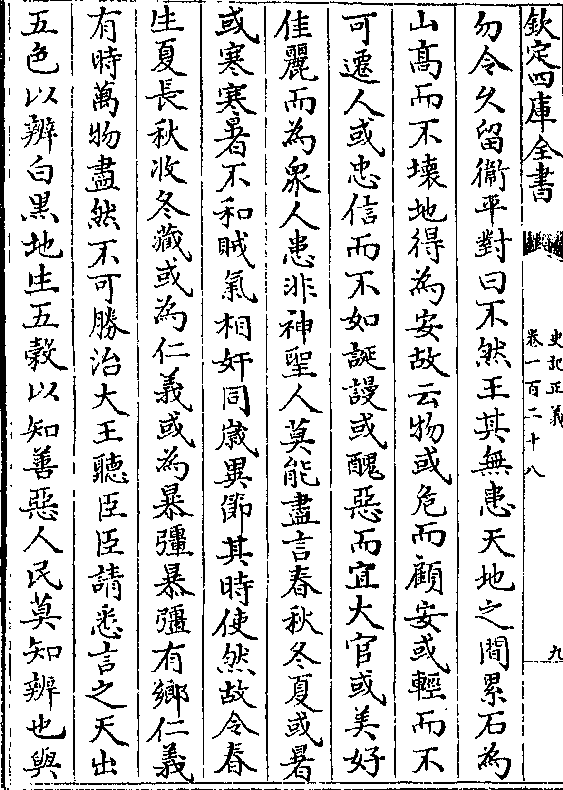 欽定四庫全書
史記正義
卷一百二十八
九
勿令久留衞平對曰不然王其無患天地之間累石為
山高而不壞地得為安故云物或危而顧安或輕而不
可遷人或忠信而不如誕謾或醜惡而宜大官或美好
佳麗而為衆人患非神聖人莫能盡言春秋冬夏或暑
或寒寒暑不和賊氣相奸同嵗異節其時使然故令春
生夏長秋收冬藏或為仁義或為暴彊暴彊有鄉仁義
有時萬物盡然不可勝治大王聽臣臣請悉言之天出
五色以辨白黑地生五榖以知善惡人民莫知辨也與